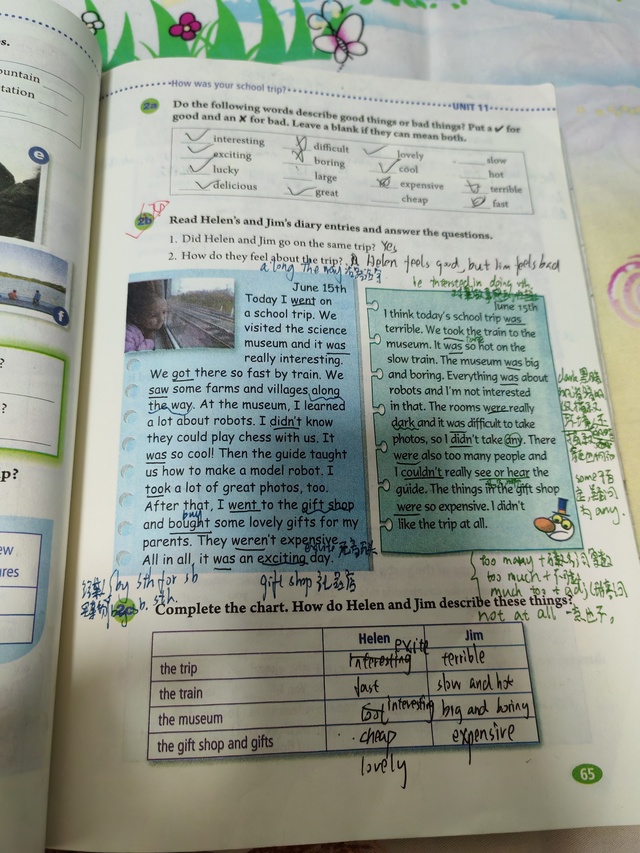 s.
ountain
tation
e
f
?
?
ip?
ew
ures
How was your school trip?
UNIT 11
2a Do the following words describe good things or bad things? Put a ✔ for
good and an ✘ for bad. Leave a blank if they can mean both.
interesting difficult lovely slow
exciting boring cool hot
lucky large expensive terrible
delicious great cheap fast
2b Read Helen's and Jim's diary entries and answer the questions.
1. Did Helen and Jim go on the same trip? Yes
2. How do they feel about the trip? Helen feels good, but Jim feels bad
along the way
be interested in doing sth
June 15th
Today I went on
a school trip. We
visited the science
museum and it was
really interesting.
We got there so fast by train. We
saw some farms and villages along
the way. At the museum, I learned
a lot about robots. I didn't know
they could play chess with us. It
was so cool! Then the guide taught
us how to make a model robot. I
took a lot of great photos, too.
After that, I went to the gift shop
buy
and bought some lovely gifts for my
parents. They weren't expensive.
All in all, it was an exciting day.
gift shop 礼品店
by sth for sb
June 15th
I think today's school trip was
terrible. We took the train to the
museum. It was so hot on the
slow train. The museum was big
and boring. Everything was about
robots and I'm not interested
in that. The rooms were really
dark and it was difficult to take
photos, so I didn't take any. There
were also too many people and
I couldn't really see or hear the
guide. The things in the gift shop
were so expensive. I didn't
like the trip at all.
dark 黑暗
any.
too many + 可数
too much + 不可数
much too + adj
not at all 一点也不。
2c Complete the chart. How do Helen and Jim describe these things?
Helen Jim
the trip interesting exite terrible
the train fast slow and hot
the museum cool interesting big and boring
the gift shop and gifts cheap expensive
lovely
65